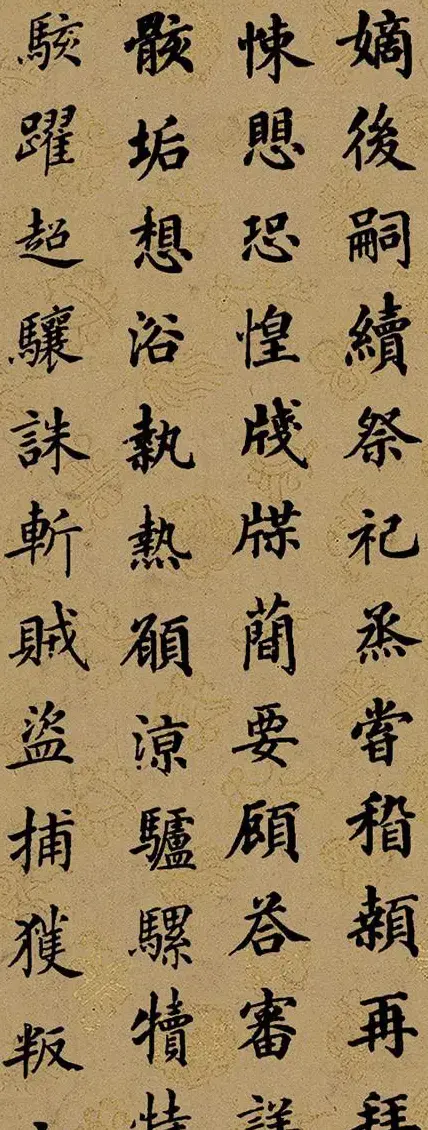 嫡後嗣續祭祀烝嘗稽顙再拜
悚愳恐惶牋牒蕳要顧荅審詳
骸垢想浴執熱願涼驢騾犢特
駭躍超驤誅斬賊盜捕獲叛